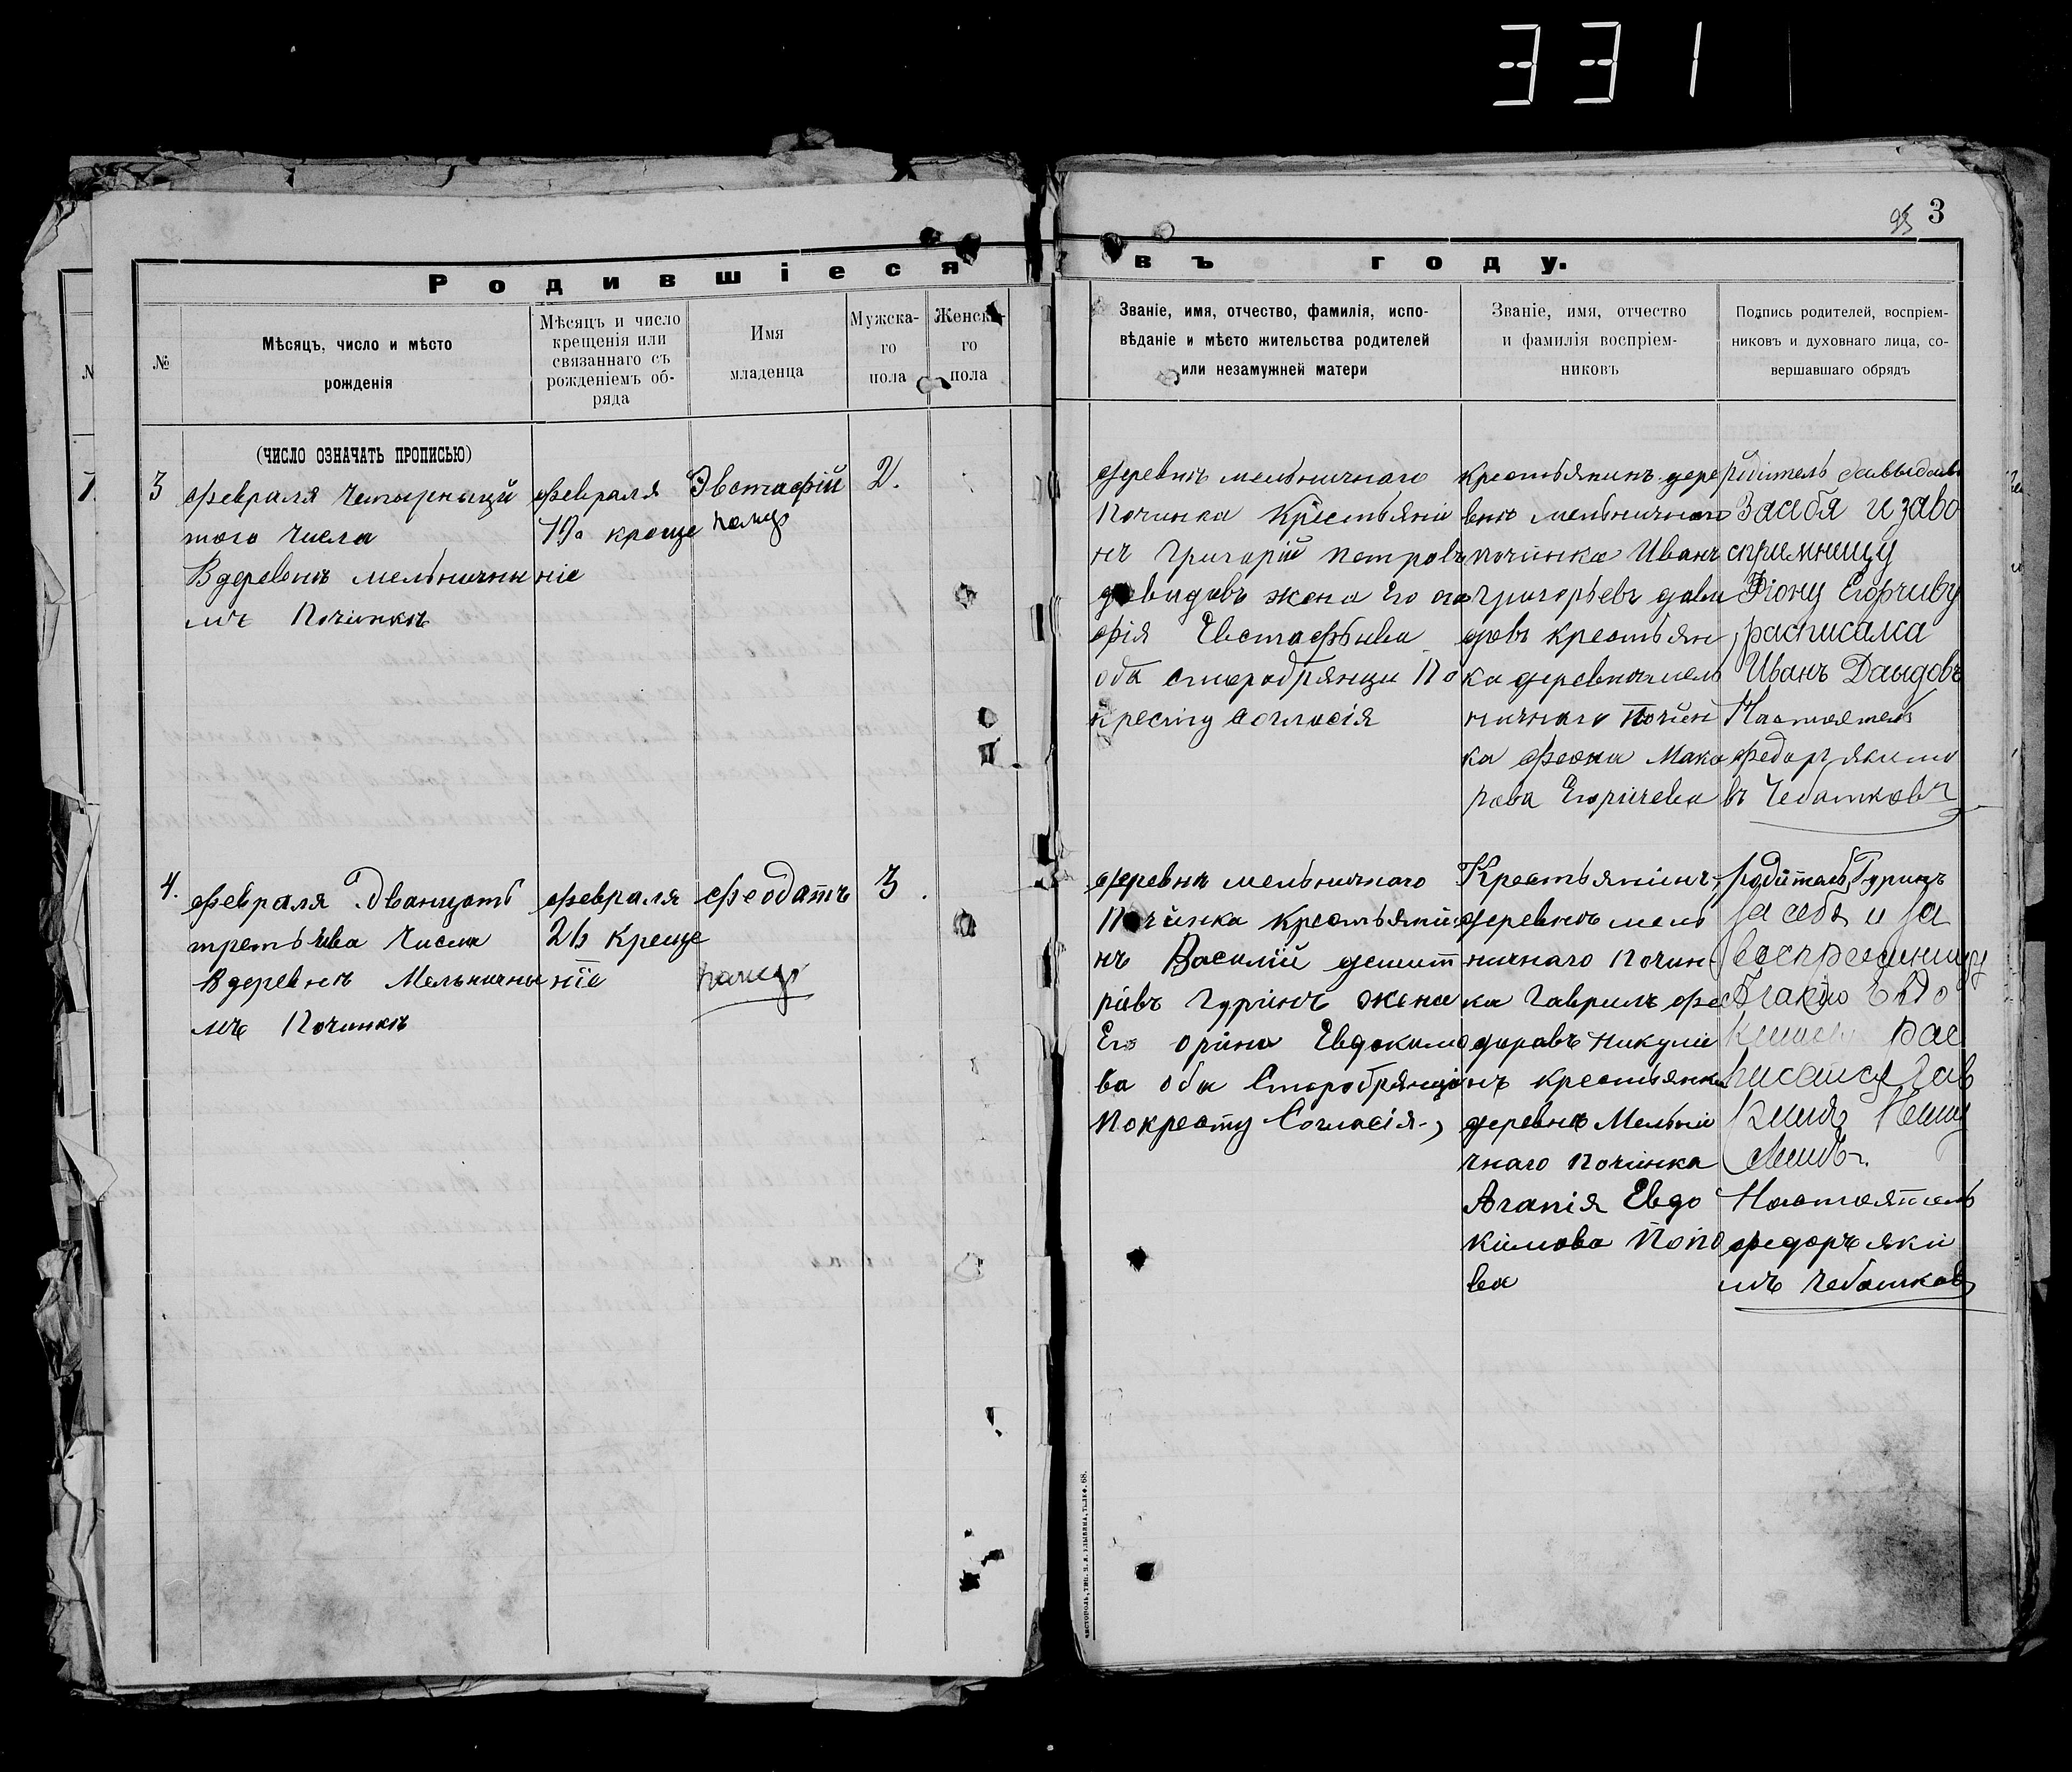 331
93 3
Родившіеся
въ году.
№
Мѣсяцъ, число и мѣсто
рожденія
Мѣсяцъ и число
крещенія или
связаннаго съ
рожденіемъ об-
ряда
Имя
младенца
Мужска-
го
пола
Женска-
го
пола
Званіе, имя, отчество, фамилія, испо-
вѣданіе и мѣсто жительства родителей
или незамужней матери
Званіе, имя, отчество
и фамилія воспріем-
никовъ
Подпись родителей, воспріем-
никовъ и духовнаго лица, со-
вершавшаго обрядъ
(ЧИСЛО ОЗНАЧАТЬ ПРОПИСЬЮ)
3
февраля
того числа
В деревнѣ мельничны
мъ Починкѣ
февраля
креще
ніе
Эвстафій
2.
деревнѣ мельничнаго
Починка Крестьяни
нъ Григорій петровъ
давидовъ жена Его со
фія Евстафьива
оба старобрянци По
кресту согласія
крестьянинъ дере
внѣ мельничнаго
починка Иванъ
григорьевъ дави
довъ крестьян
ка деревнимель
ничнаго Почин
ка феона Мака
рова Егоричева
родитель
Засебя и заво
сприемницу
Фіону Егорчиву
расписалса
Иванъ Давыдовъ
Настоятель
федоръ якимо
въ Чебатковъ
4.
февраля Дванцать
третьива числа
В деревнѣ Мельничны
мъ Починкѣ
февраля
Креще
ніе
феодатъ
3.
деревнѣ мельничнаго
Починка крестьяни
нъ Василій демит
ріевъ Гуринъ жена
Его орина Евдокимо
ва оба Старобрянци
Покресту Согласія
Крестьянинъ
деревнѣ мель
ничнаго Почин-
ка Гаврилъ фе
доровъ Никули
нъ крестьянка
деревнѣ Мельни
чнаго починка
Агапія Евдо
кимова Попо
ва
родитель Гуринъ
за себя и за
воспреемницу
Евдо
рас
писался Гав
Настоятель
федоръ яки
мъ Чебатковъ